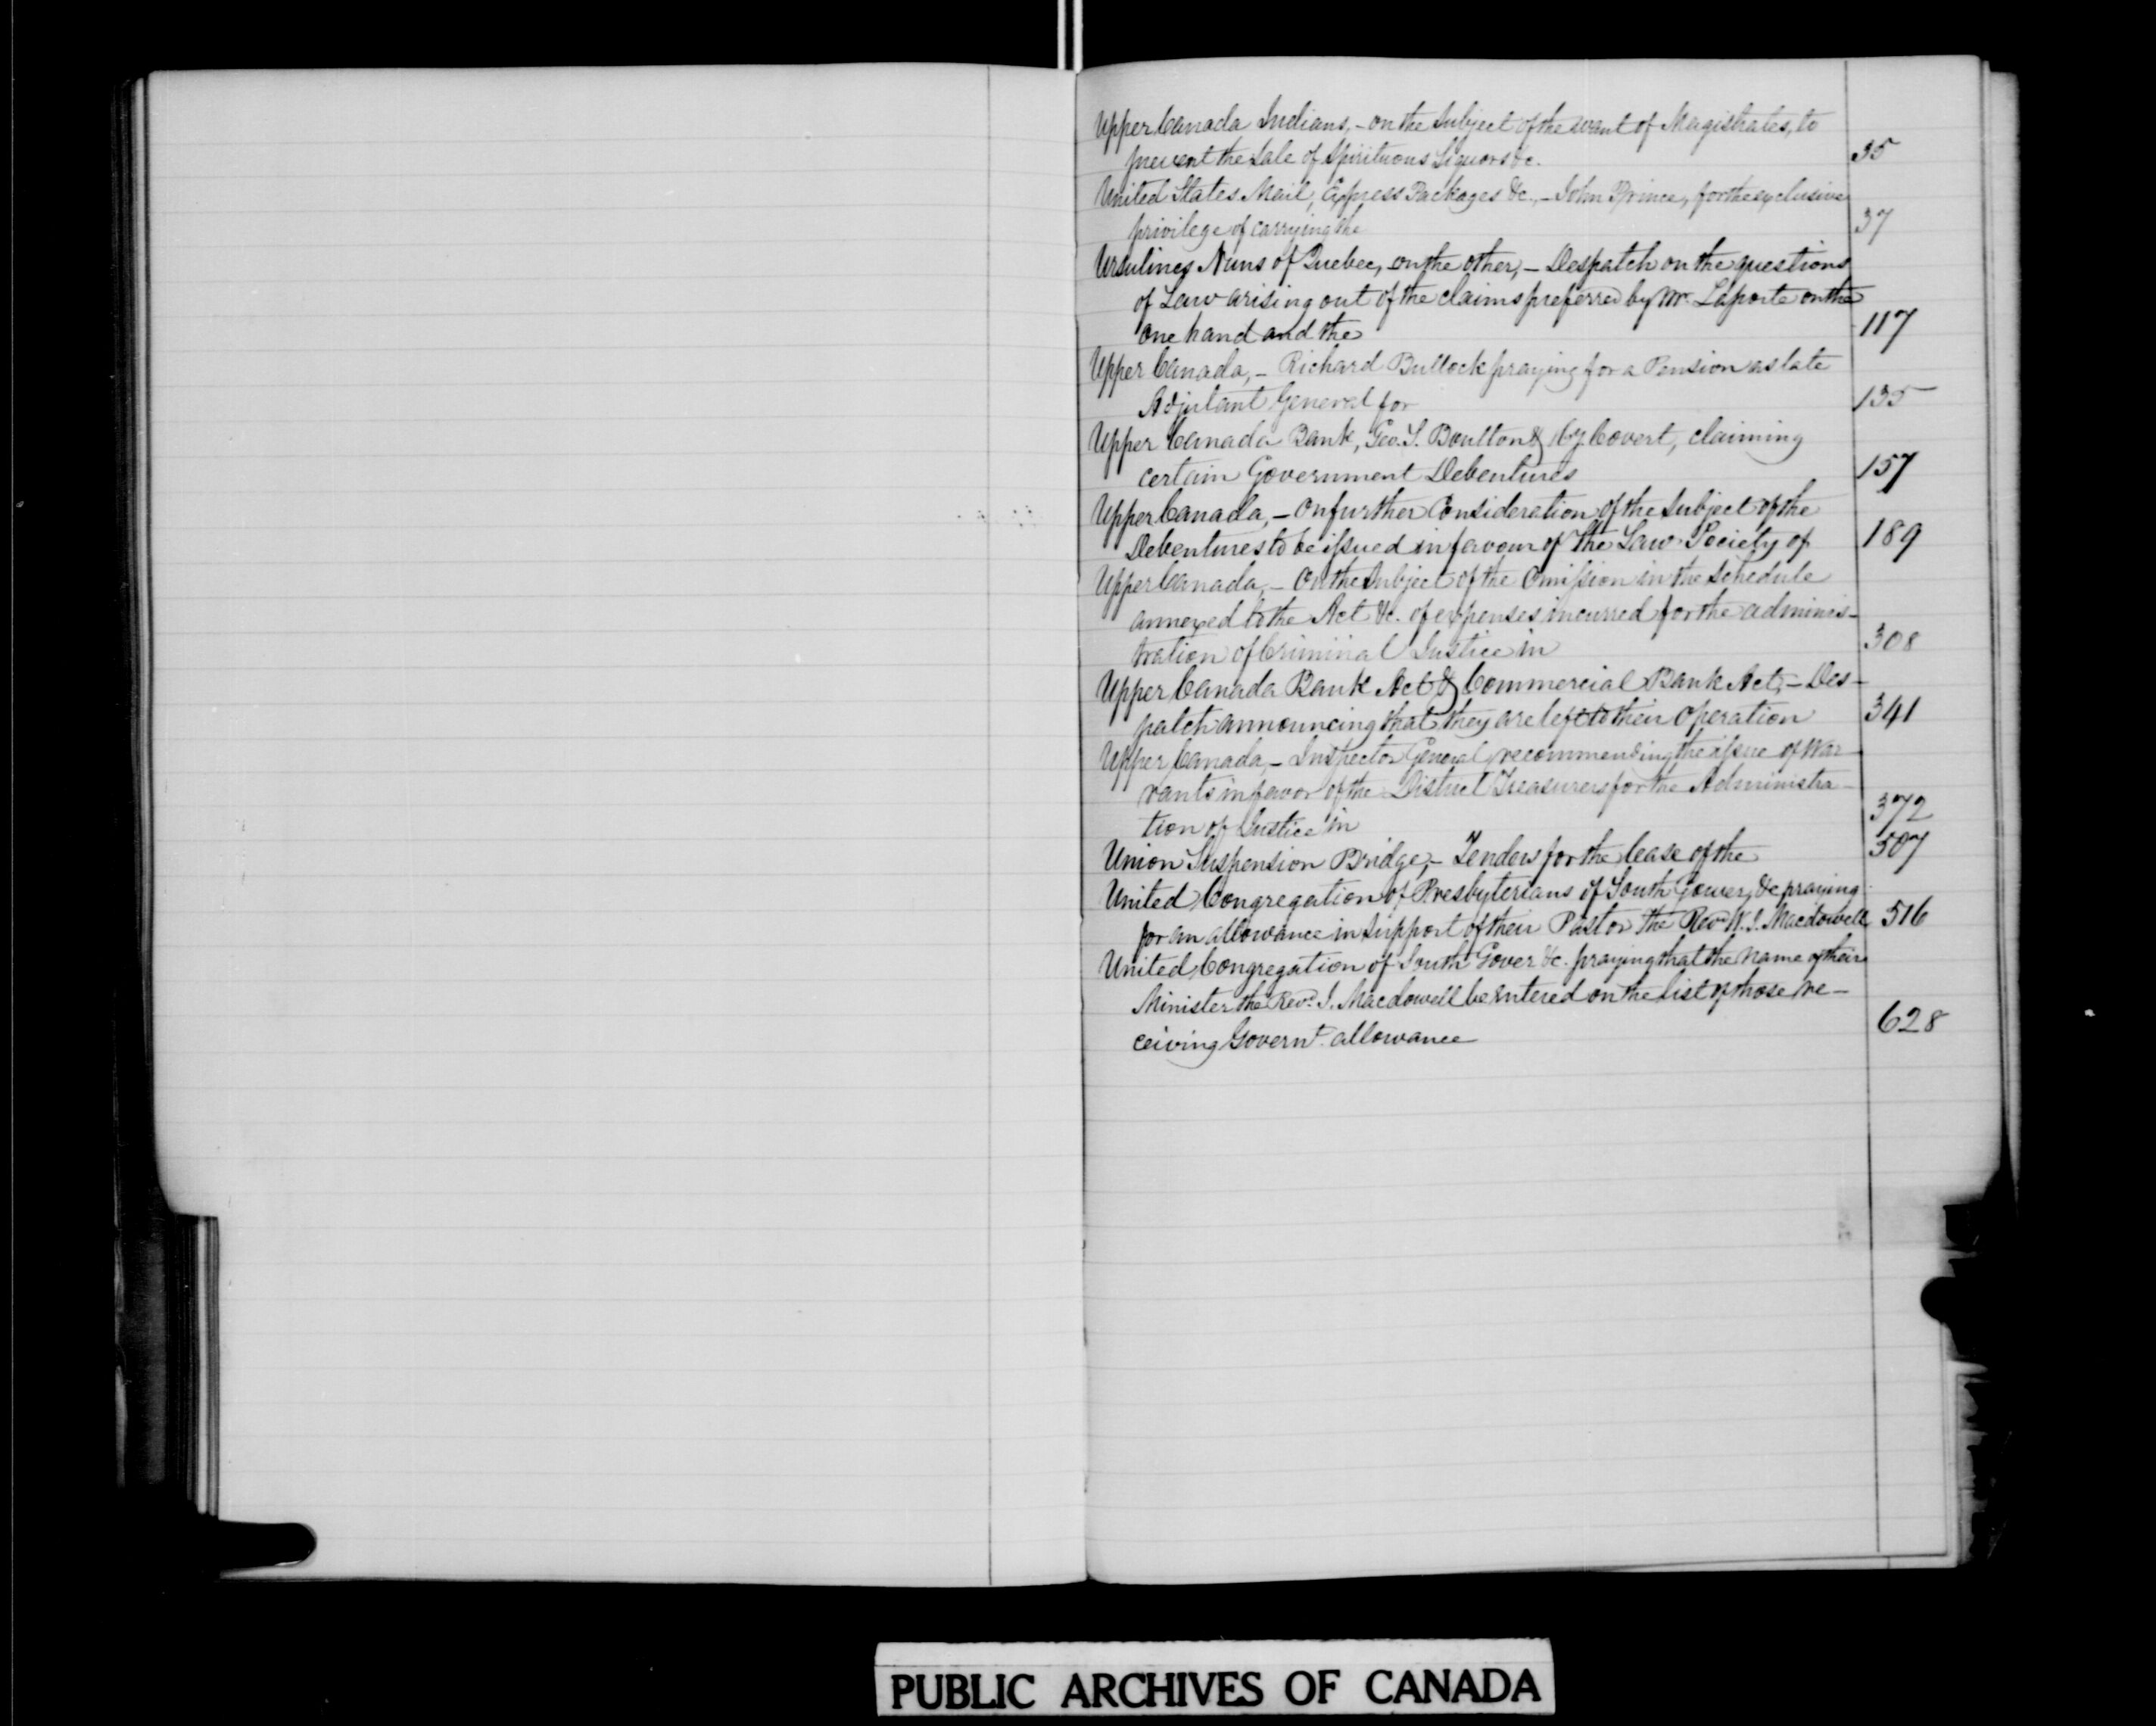 Upper Canada Indians,- on the Subject of the want of Magistrates, to
prevent the Sale of Spirituous Liquors &c. 35
United States Mail, Express Packages &c.,- John Prince, for the exclusive
privilege of carrying the 37
Ursulines Nuns of Quebec, on the other,- Despatch on the questions
of Law arising out of the claims preferred by Mr. Laporte on the
one hand and the 117
Upper Canada,- Richard Bullock praying for a Pension as late
Adjutant General for 135
Upper Canada Bank, Geo. S. Boulton & Covert, claiming
certain Government Debentures 157
Upper Canada,- on further Consideration of the Subject of the
Debentures to be issued in favour of the Law Society of 189
Upper Canada,- On the Subject of the Omission in the Schedule
annexed to the Act &c. of expenses incurred for the adminis-
tration of Criminal Justice in 308
Upper Canada Bank Act & Commercial Bank Act,- Des-
patch announcing that they are left to their Operation 341
Upper Canada,- Inspector General recommending the issue of War-
rants in favor of the District Treasurers for the Administra-
tion of Justice in 372
Union Suspension Bridge,- Tenders for the lease of the 507
United Congregation of Presbyterians of South Gower, &c praying
for an allowance in support of their Pastor the Revd W. J. Macdowell 516
United Congregation of South Gower &c. praying that the name of their
Minister the Revd. J. Macdowell be entered on the list of those re-
ceiving Governt. allowance 628
PUBLIC ARCHIVES OF CANADA